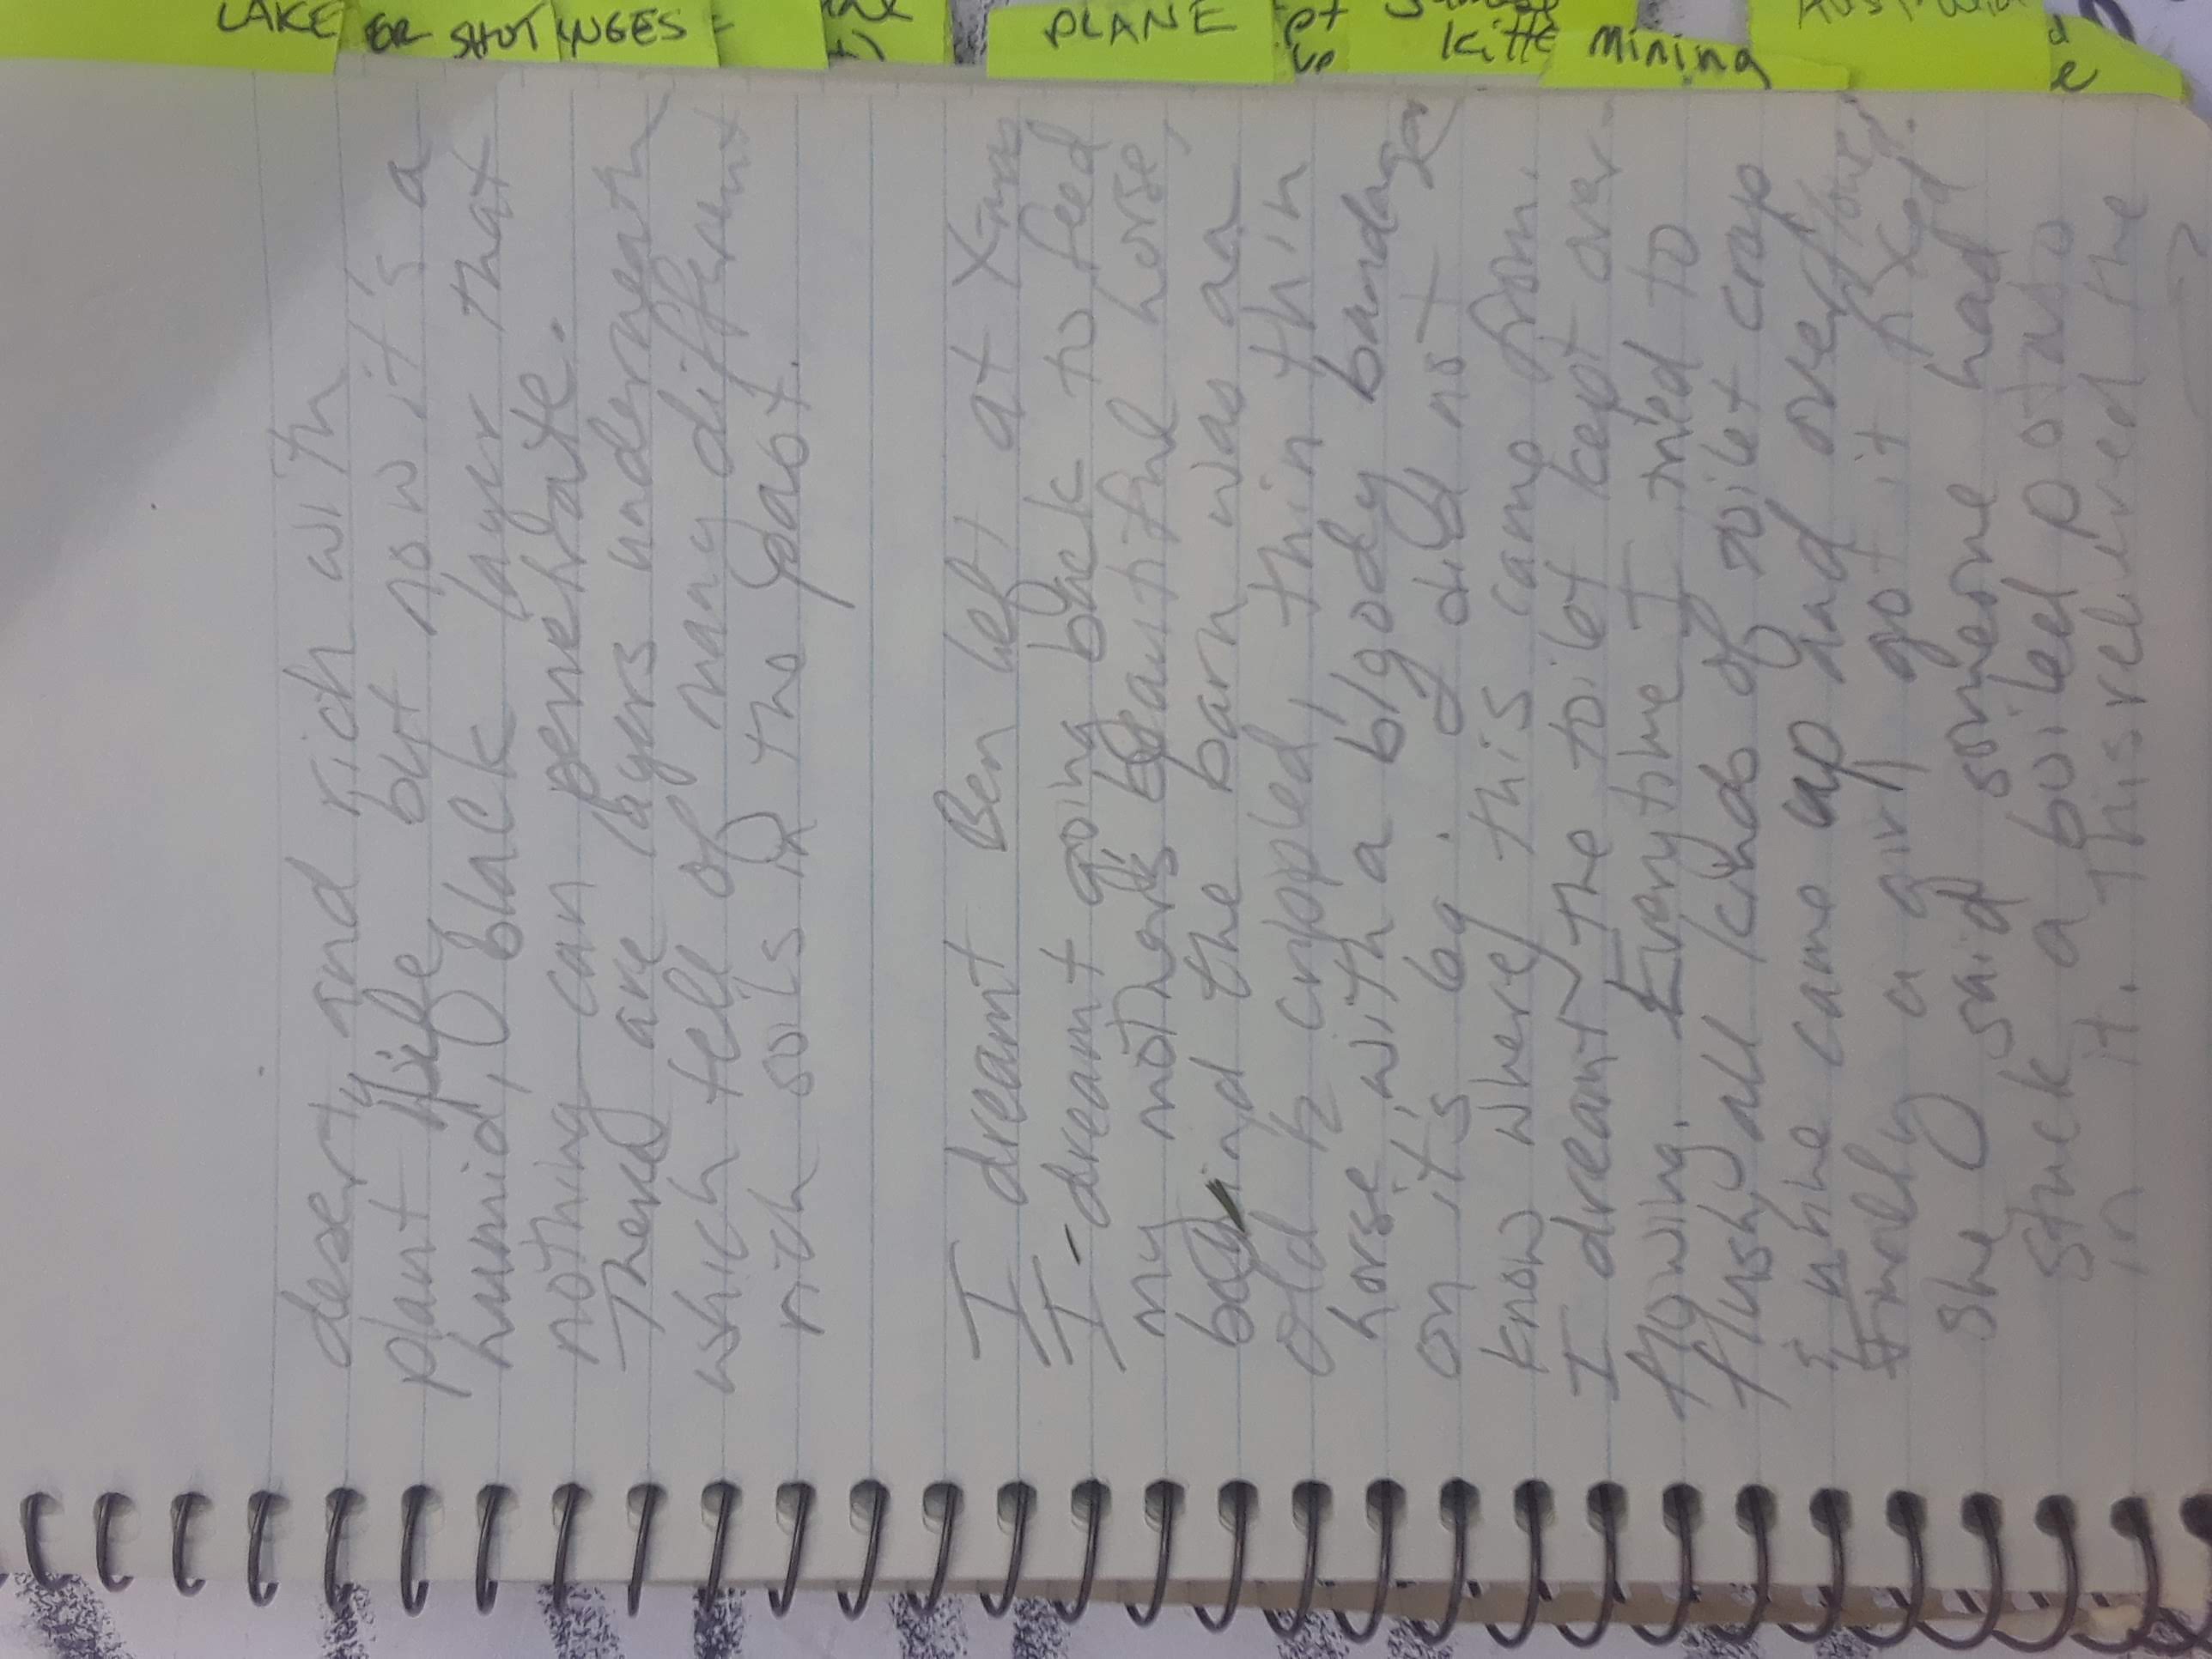 LAKE
OR SHUT
INGES =
PLANE
pt
up
kitte
mining
deserty and rich with
plant life but now it's a
humid, black layer that
nothing can penehrate.
There are layers underneath
which tell of many different
rich soils in the past.
I dreamt Ben left at Xmas
I dreamt going back to feed
my mother's beautiful horse,
behind the barn was an
old & crippled, thin thin
horse, with a bloody bandage
on it's leg. I did not
know where this came from.
I dreamt the toilet kept over-
flowing. Everytime I tried to
flush, all kinds of toilet crap
& urine came up and overflowed.
Finally a girl got it fixed.
She said someone had
stuck a boiled potato
in it. This relieved the